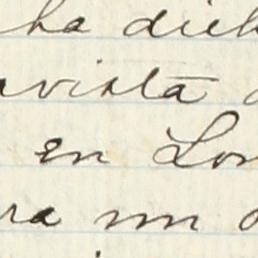 ha dich
vista
en Lon
ra un